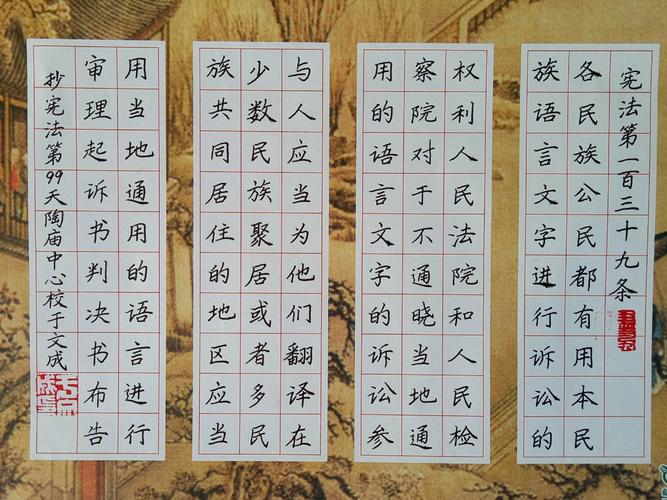 宪法第一百三十九条
各民族公民都有用本民
族语言文字进行诉讼的
权利人民法院和人民检
察院对于不通晓当地通
用的语言文字的诉讼参
与人应当为他们翻译在
少数民族聚居或者多民
族共同居住的地区应当
用当地通用的语言进行
审理起诉书判决书布告
抄宪法第99天陶庙中心校于文成